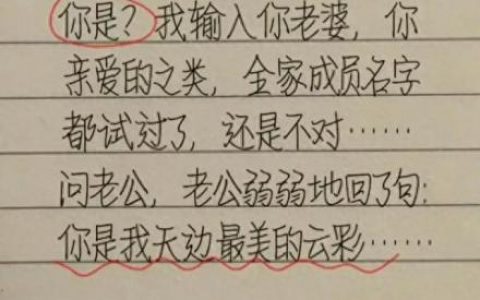 你是？我输入你老婆，你
亲爱的之类，全家成员名字
都试过了，还是不对……
问老公，老公弱弱地回了句：
你是我天边最美的云彩……